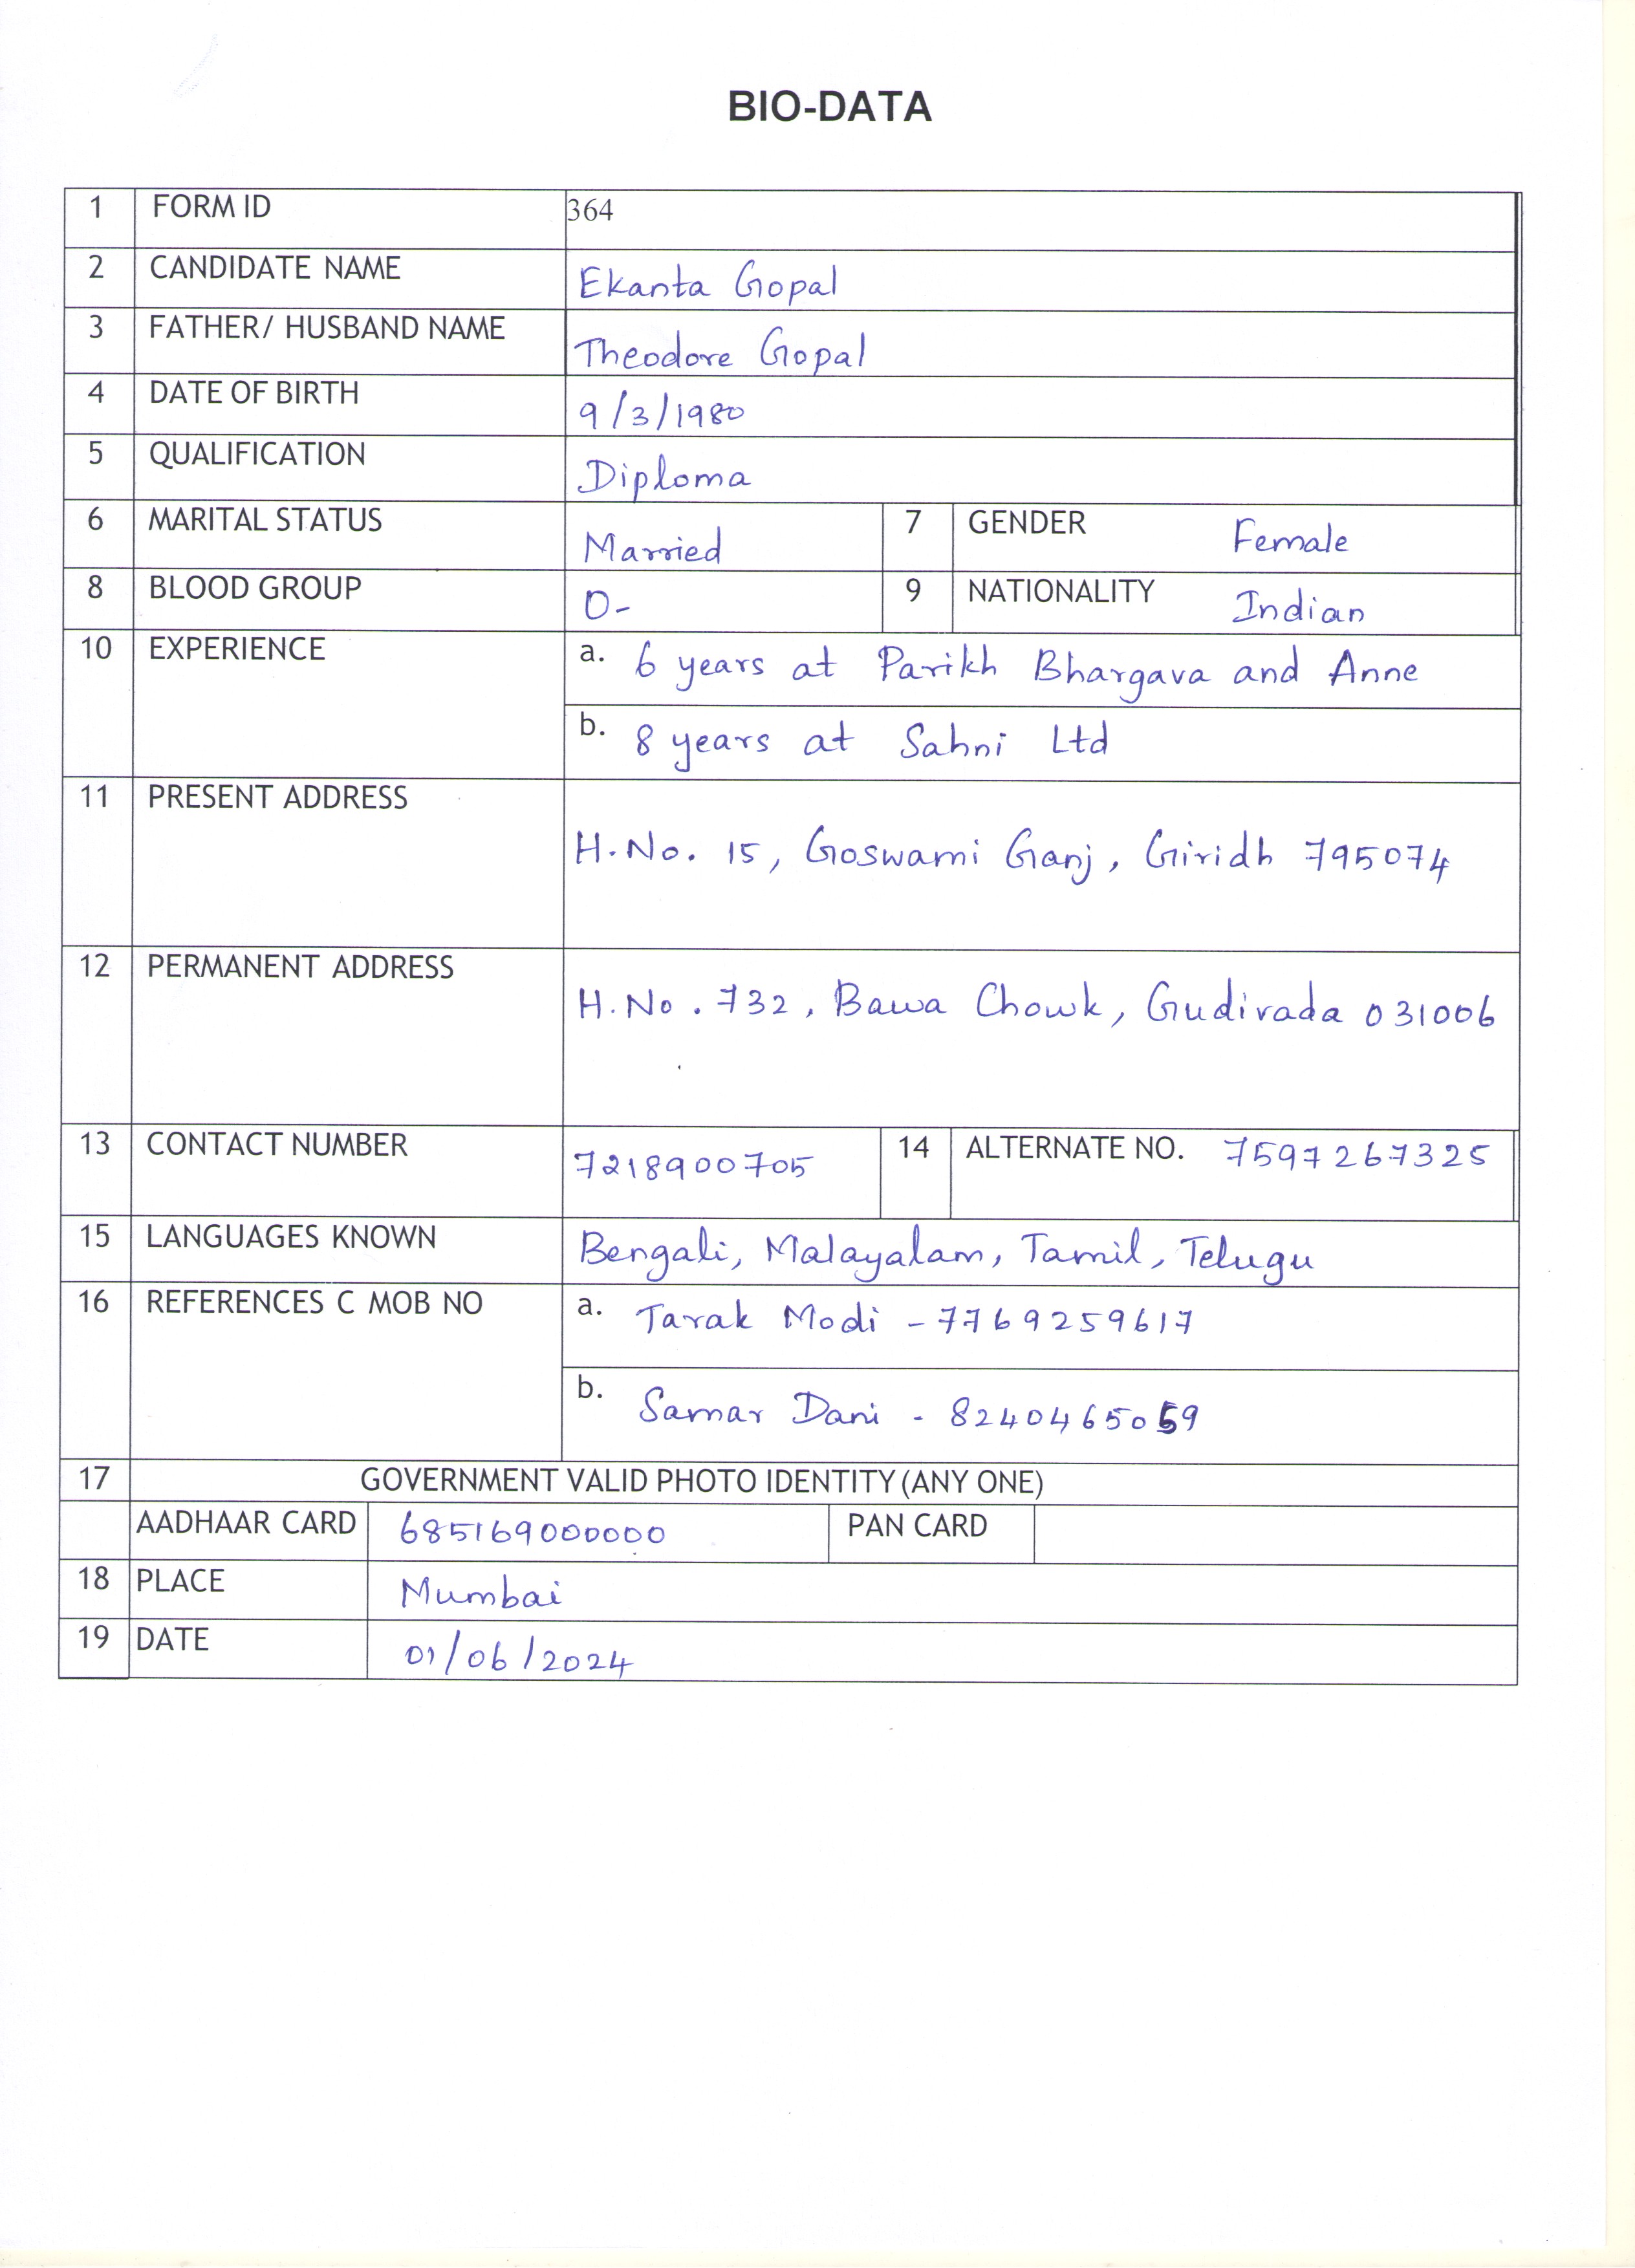 BIO-DATA
1 FORM ID 364
2 CANDIDATE NAME Ekanta Gopal
3 FATHER/ HUSBAND NAME Theodore Gopal
4 DATE OF BIRTH 9/3/1980
5 QUALIFICATION Diploma
6 MARITAL STATUS Married 7 GENDER Female
8 BLOOD GROUP O- 9 NATIONALITY Indian
10 EXPERIENCE a. 6 years at Parikh Bhargava and Anne
b. 8 years at Sahni Ltd
11 PRESENT ADDRESS
H.No. 15, Goswami Ganj, Giridh 795074
12 PERMANENT ADDRESS
H.No. 732, Bawa Chowk, Gudivada 031006
13 CONTACT NUMBER 7218900705 14 ALTERNATE NO. 7597267325
15 LANGUAGES KNOWN Bengali, Malayalam, Tamil, Telugu
16 REFERENCES C MOB NO a. Tarak Modi - 7769259617
b. Samar Dani - 8240465059
17 GOVERNMENT VALID PHOTO IDENTITY (ANY ONE)
AADHAAR CARD 685169000000 PAN CARD
18 PLACE Mumbai
19 DATE 01/06/2024